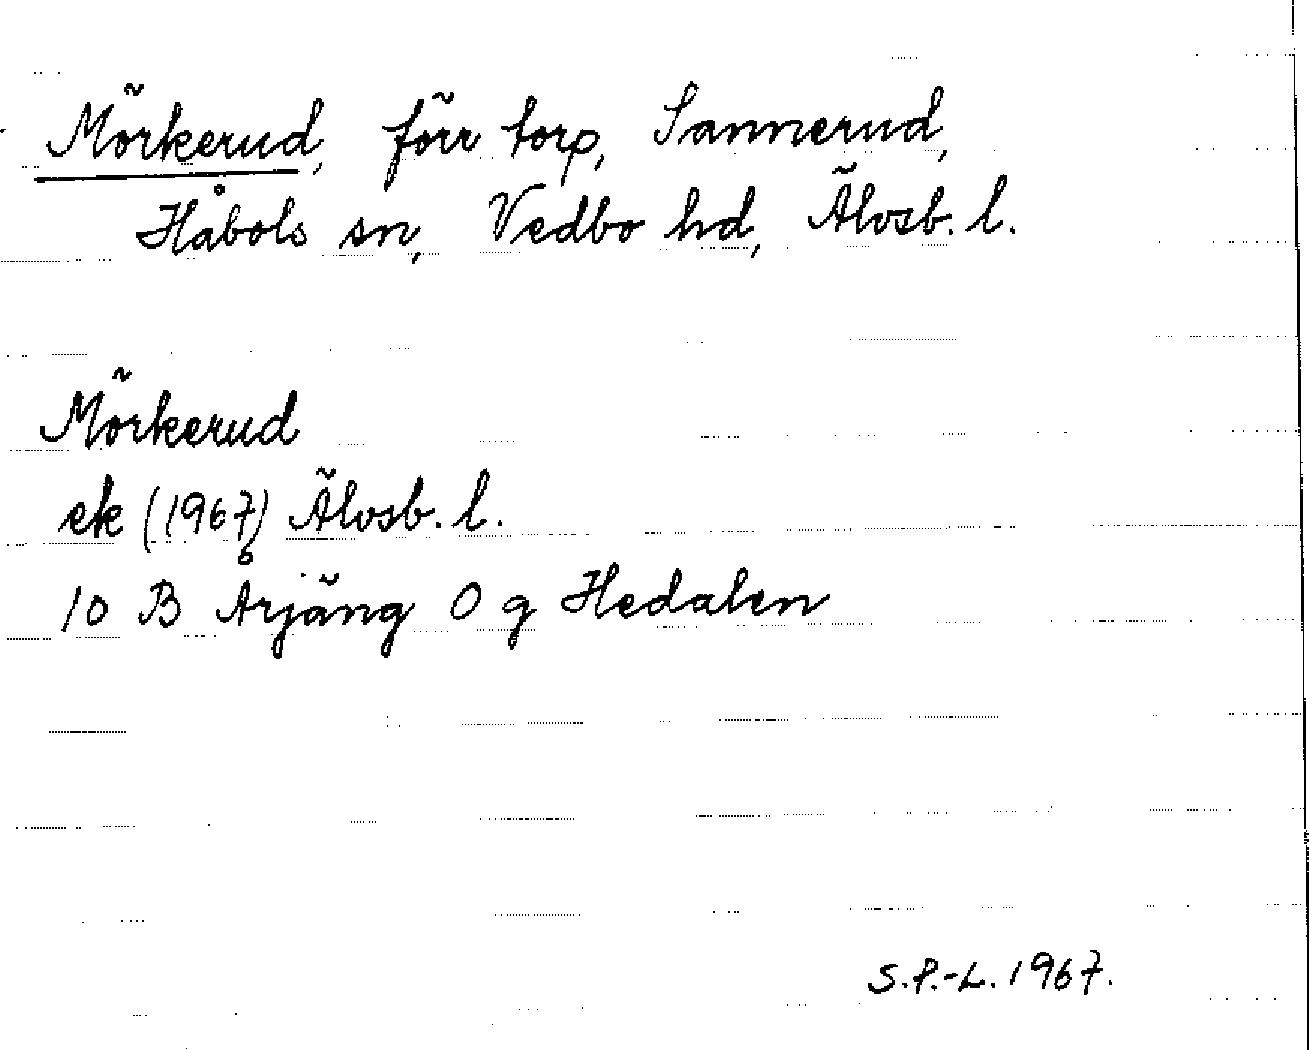 Mörkerud, förr torp, Sannerud,
Håbols sn, Vedbo hd, Älvsb. l.
Mörkerud
ek (1967) Älvsb. l.
10 B Årjäng 0 g Hedalen
S.P.-L. 1967.